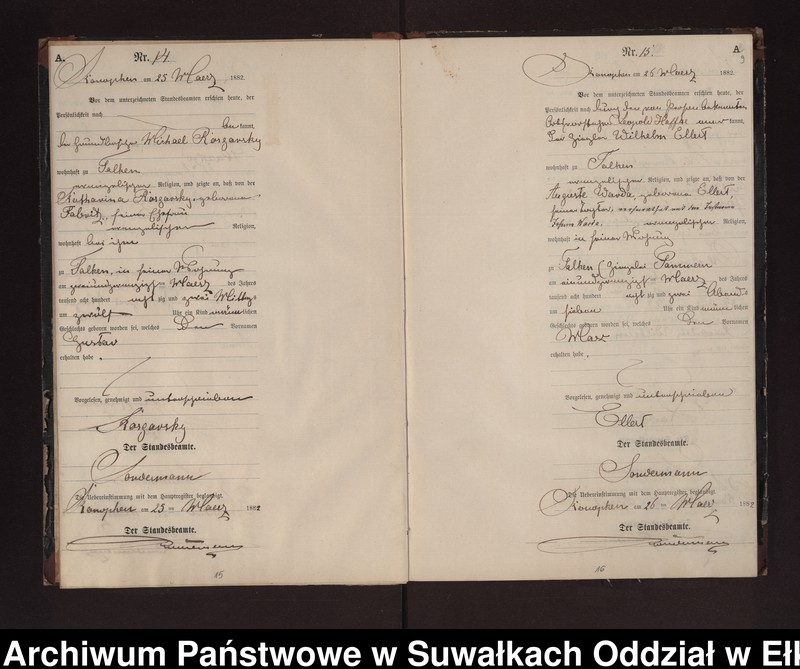 A. Nr. 14
Konopken am 25 Maerz 1882.
Vor dem unterzeichneten Standesbeamten erschien heute, der
Persönlichkeit nach
kannt,
Michael Kosgavsky
wohnhaft zu Falken
evangelischer Religion, und zeigte an, daß von der
Katharina Kosgavsky, geborene
seiner Ehefrau
evangelischer Religion,
wohnhaft bei ihm
zu Falken, in seiner Wohnung
am zweiundzwanzigst Maerz des Jahres
tausend acht hundert achtzig und zwei Mittags
um zwölf Uhr ein Kind männlichen
Geschlechts geboren worden sei, welches Den Vornamen
Gustav
erhalten habe.
Vorgelesen, genehmigt und unterschrieben
Kosgavsky
Der Standesbeamte.
Sondermann
Die Uebereinstimmung mit dem Hauptregister beglaubigt.
Konopken am 25 Maerz 1882
Der Standesbeamte.
Sondermann
15
Nr. 15. A
9
Konopken am 26 Maerz 1882.
Vor dem unterzeichneten Standesbeamten erschien heute, der
Persönlichkeit nach durch den von Person bekannten
Leopold kannt,
Der Ziegler Wilhelm Ellert
wohnhaft zu Falken
evangelischer Religion, und zeigte an, daß von der
Auguste Warda, geborene Ellert,
seiner Tochter,
evangelischer Religion,
wohnhaft in seiner Wohnung
zu Falken (Ziegelei
am Maerz des Jahres
tausend acht hundert achtzig und zwei Abends
um sieben Uhr ein Kind männlichen
Geschlechts geboren worden sei, welches Den Vornamen
Max
erhalten habe.
Vorgelesen, genehmigt und unterschrieben
Ellert
Der Standesbeamte.
Sondermann
Die Uebereinstimmung mit dem Hauptregister beglaubigt.
Konopken am 26 Maerz 1882
Der Standesbeamte.
Sondermann
16
Archiwum Państwowe w Suwałkach Oddział w Eł